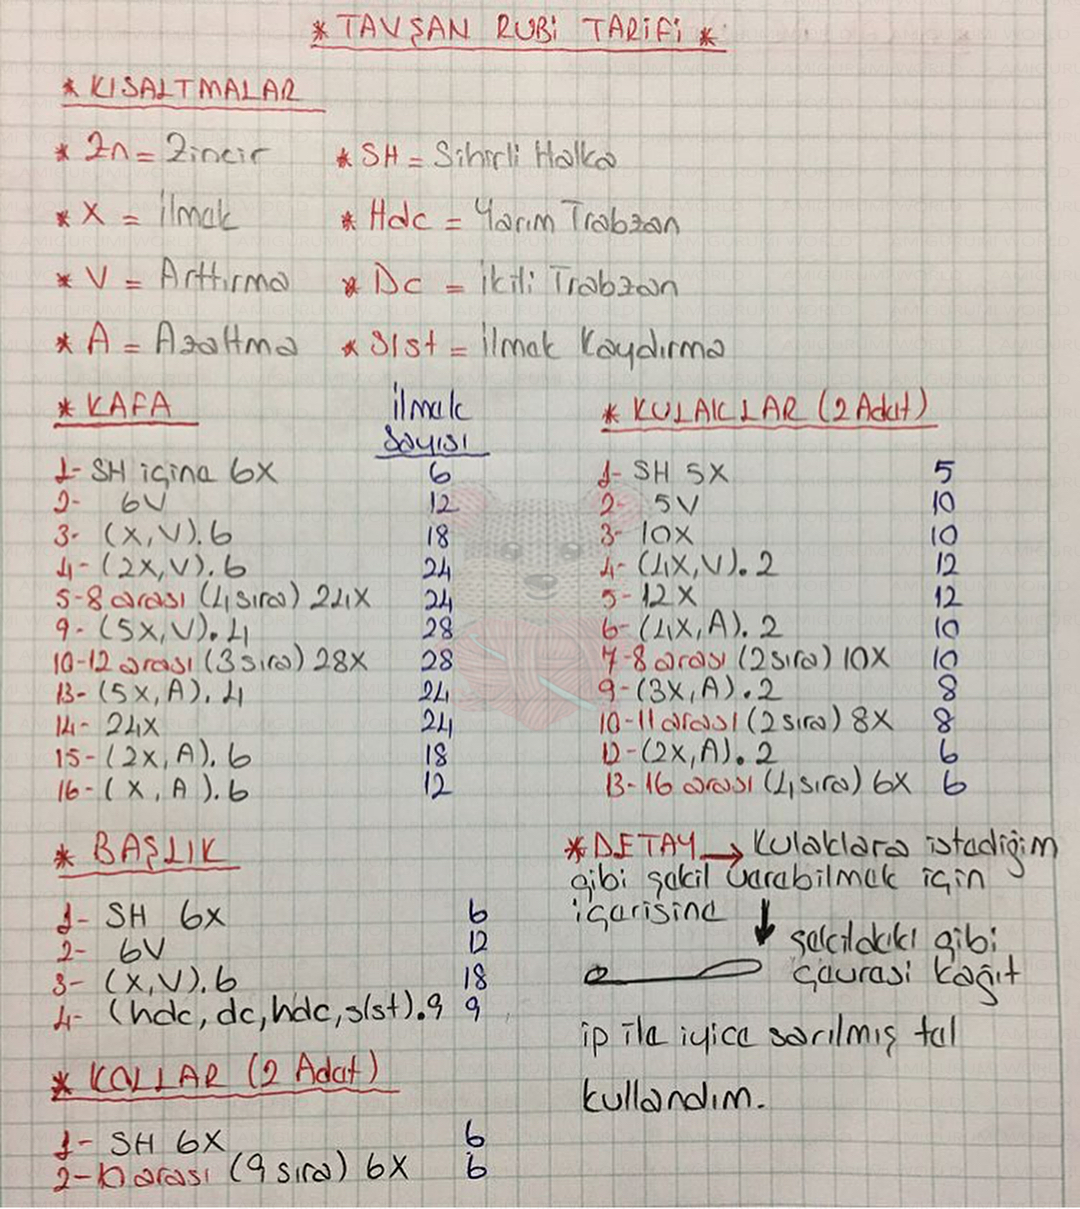 * TAVŞAN RUBİ TARİFİ *
* KISALTMALAR
* Zn = Zincir
* SH = Sihirli Halka
* X = ilmek
* Hdc = Yarım Trabzan
* V = Arttırma
* Dc = ikili Trabzan
* A = Azaltma
* Slst = ilmek Kaydırma
* KAFA
ilmek
sayısı
1- SH içine 6X 6
2- 6V 12
3- (X,V).6 18
4- (2X,V).6 24
5-8 arası (4 sıra) 24X 24
9- (5X,V).4 28
10-12 arası (3 sıra) 28X 28
13- (5X,A).4 24
14- 24X 24
15- (2X,A).6 18
16- (X,A).6 12
* KULAKLAR (2 Adet)
1- SH 5X 5
2- 5V 10
3- 10X 10
4- (4X,V).2 12
5- 12X 12
6- (4X,A).2 10
7-8 arası (2 sıra) 10X 10
9- (3X,A).2 8
10-11 arası (2 sıra) 8X 8
12- (2X,A).2 6
13-16 arası (4 sıra) 6X 6
* BAŞLIK
1- SH 6X 6
2- 6V 12
3- (X,V).6 18
4- (hdc, dc, hdc, slst).9 9
* KOLLAR (2 Adet)
1- SH 6X 6
2-10 arası (9 sıra) 6X 6
* DETAY → Kulaklara istediğim
gibi şekil verebilmek için
içerisine ↓
şekildeki gibi
çevresi kağıt
ip ile iyice sarılmış tel
kullandım.